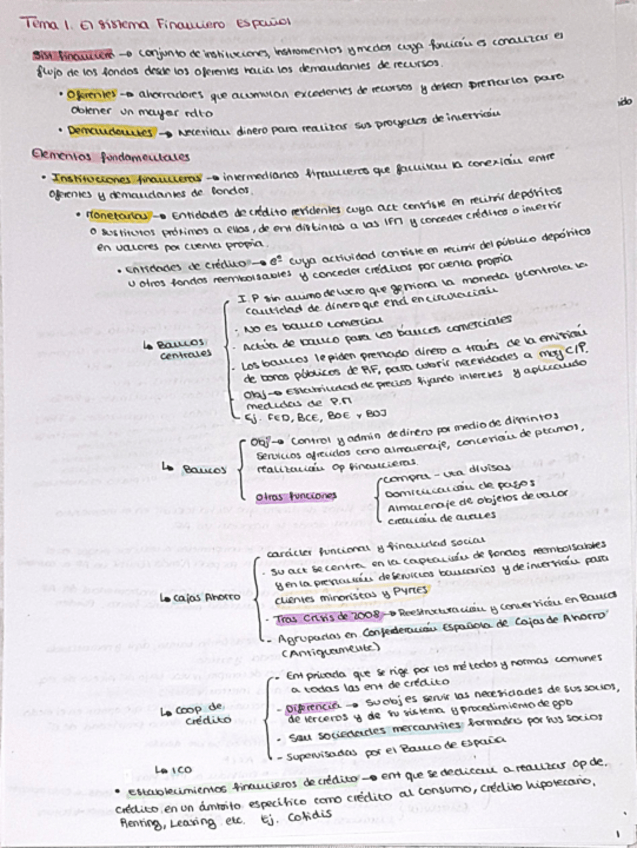 Tema 1. El Sistema Financiero Español
Sist financiero → conjunto de instituciones, instrumentos y medios cuya función es canalizar el
flujo de los fondos desde los oferentes hacia los demandantes de recursos.
• Oferentes → ahorradores que acumulan excedentes de recursos y desean prestarlos para
obtener un mayor rdto
• Demandantes → Necesitan dinero para realizar sus proyectos de inversión
Elementos fundamentales
• Instituciones financieras → intermediarios financieros que facilitan la conexión entre
oferentes y demandantes de fondos.
• Monetarias → Entidades de crédito residentes cuya act consiste en recibir depósitos
o sustitutos próximos a ellos, de ent distintas a las IFM y conceder créditos o invertir
en valores por cuenta propia.
• Entidades de crédito → eª cuya actividad consiste en recibir del público depósitos
u otros fondos reembolsables y conceder créditos por cuenta propia
↳ Bancos centrales
I.P sin animo de lucro que gestiona la moneda y controla la
cantidad de dinero que está en circulación
- No es banco comercial
- Actúa de banco para los bancos comerciales
- Los bancos le piden prestado dinero a través de la emisión
de bonos públicos de RF, para cubrir necesidades a muy C/P.
- Obj → Estabilidad de precios fijando intereses y aplicando
medidas de P.M
- Ej. FED, BCE, BOE y BOJ
↳ Bancos
Obj → Control y admin de dinero por medio de distintos
servicios ofrecidos como almacenaje, concesión de ptamos,
realización op financieras.
Otras funciones
Compra-vta divisas
Domiciliación de pagos
Almacenaje de objetos de valor
creación de avales
↳ Cajas Ahorro
carácter funcional y finalidad social
- Su act se centra en la captación de fondos reembolsables
y en la prestación de servicios bancarios y de inversión para
clientes minoristas y Pymes
- Tras Crisis de 2008 → Reestructuración y conversión en Bancos
- Agrupadas en Confederación Española de Cajas de Ahorro
(Antiguamente)
↳ Coop de
crédito
- Ent privada que se rige por los métodos y normas comunes
a todas las ent de crédito
- Diferencia → Su obj es servir las necesidades de sus socios,
de terceros y de su sistema y procedimiento de gob
- Son sociedades mercantiles formadas por sus socios
- Supervisadas por el Banco de España
↳ ICO
• establecimientos financieros de crédito → ent que se dedican a realizar op de.
crédito en un ámbito específico como crédito al consumo, crédito hipotecario,
Renting, Leasing, etc. Ej. Cofidis
1